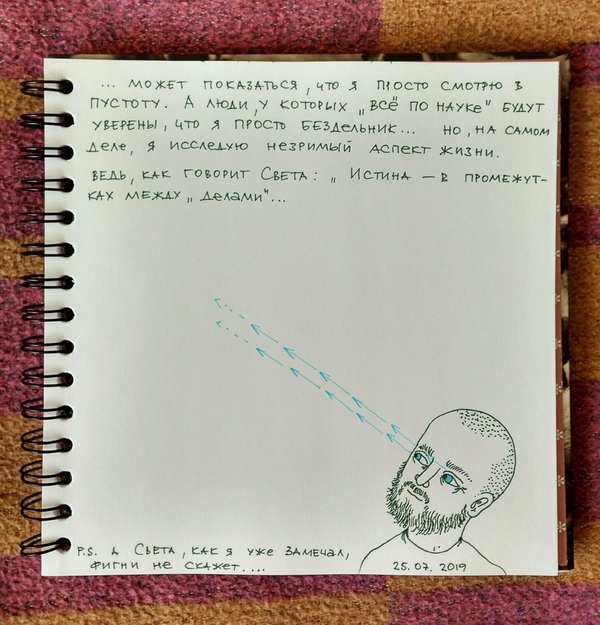 ... может показаться, что я просто смотрю в
пустоту. А люди, у которых „всё по науке" будут
уверены, что я просто бездельник... но, на самом
деле, я исследую незримый аспект жизни.
Ведь, как говорит Света: „ Истина – в промежут-
ках между „ делами"...
P.S. А Света, как я уже замечал,
фигни не скажет....
25.07.2019